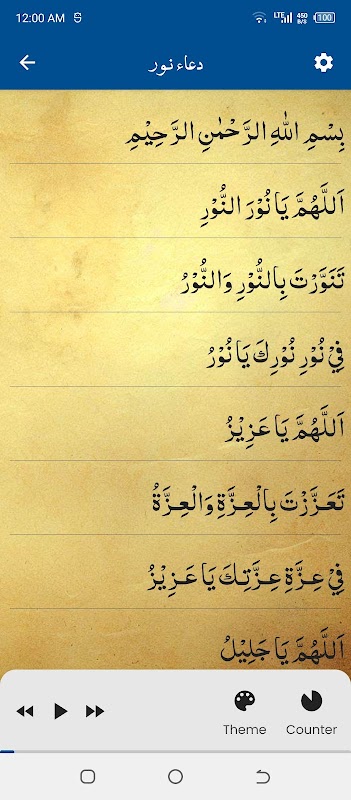 12:00 AM LTE 450 B/S 100
دعاء نور
بِسْمِ اللهِ الرَّحْمٰنِ الرَّحِيْمِ
اَللّٰهُمَّ يَا نُوْرَ النُّوْرِ
تَنَوَّرْتَ بِالنُّوْرِ وَالنُّوْرُ
فِيْ نُوْرِ نُوْرِكَ يَا نُوْرُ
اَللّٰهُمَّ يَا عَزِيْزُ
تَعَزَّزْتَ بِالْعِزَّةِ وَالْعِزَّةُ
فِيْ عِزَّةِ عِزَّتِكَ يَا عَزِيْزُ
اَللّٰهُمَّ يَا جَلِيْلُ
Theme Counter